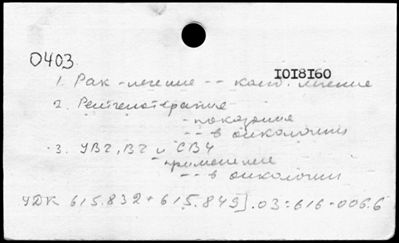 0403
IOI8I60
1. Рак - лечение -- комб. лечение
2. Рентгенотерапия
- показания
-- в онкологии
3. УВЧ, ВЧ и СВЧ
- применение
-- в онкологии
УДК 615.832+615.849].03:616-006.6